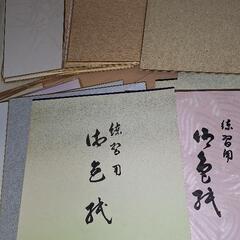 練習用
御色紙
練習用
御色紙